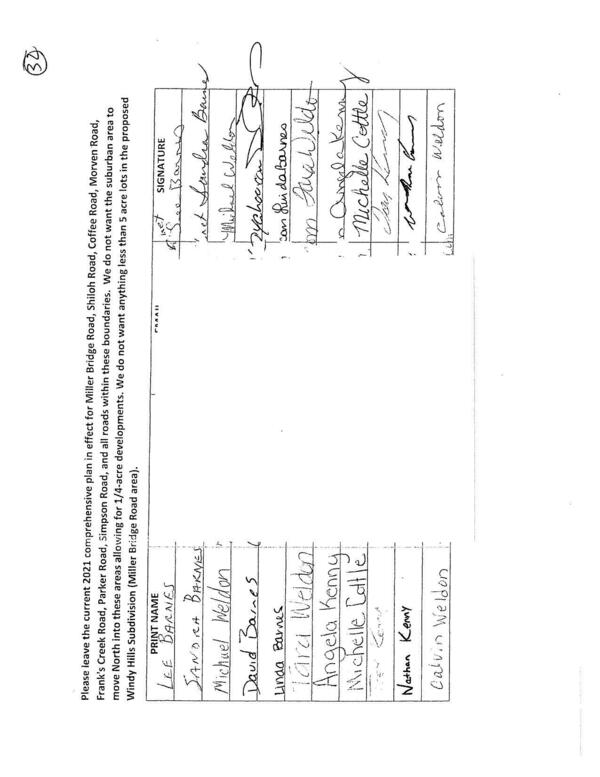 34
Please leave the current 2021 comprehensive plan in effect for Miller Bridge Road, Shiloh Road, Coffee Road, Morven Road,
Frank's Creek Road, Parker Road, Simpson Road, and all roads within these boundaries. We do not want the suburban area to
move North into these areas allowing for 1/4-acre developments. We do not want anything less than 5 acre lots in the proposed
Windy Hills Subdivision (Miller Bridge Road area).
PRINT NAME EMAIL SIGNATURE
LEE BARNES net Lee Barnes
SANDRA BARNES net Sandra Barnes
Michael Weldon Michael Weldon
David Barnes
Linda Barnes com Linda Barnes
Tara Weldon om Tara Weldon
Angela Kenny Angela Kenny
Michelle Cottle Michelle Cottle
Kenny
Nathan Kenny
Calvin Weldon Calvin Weldon